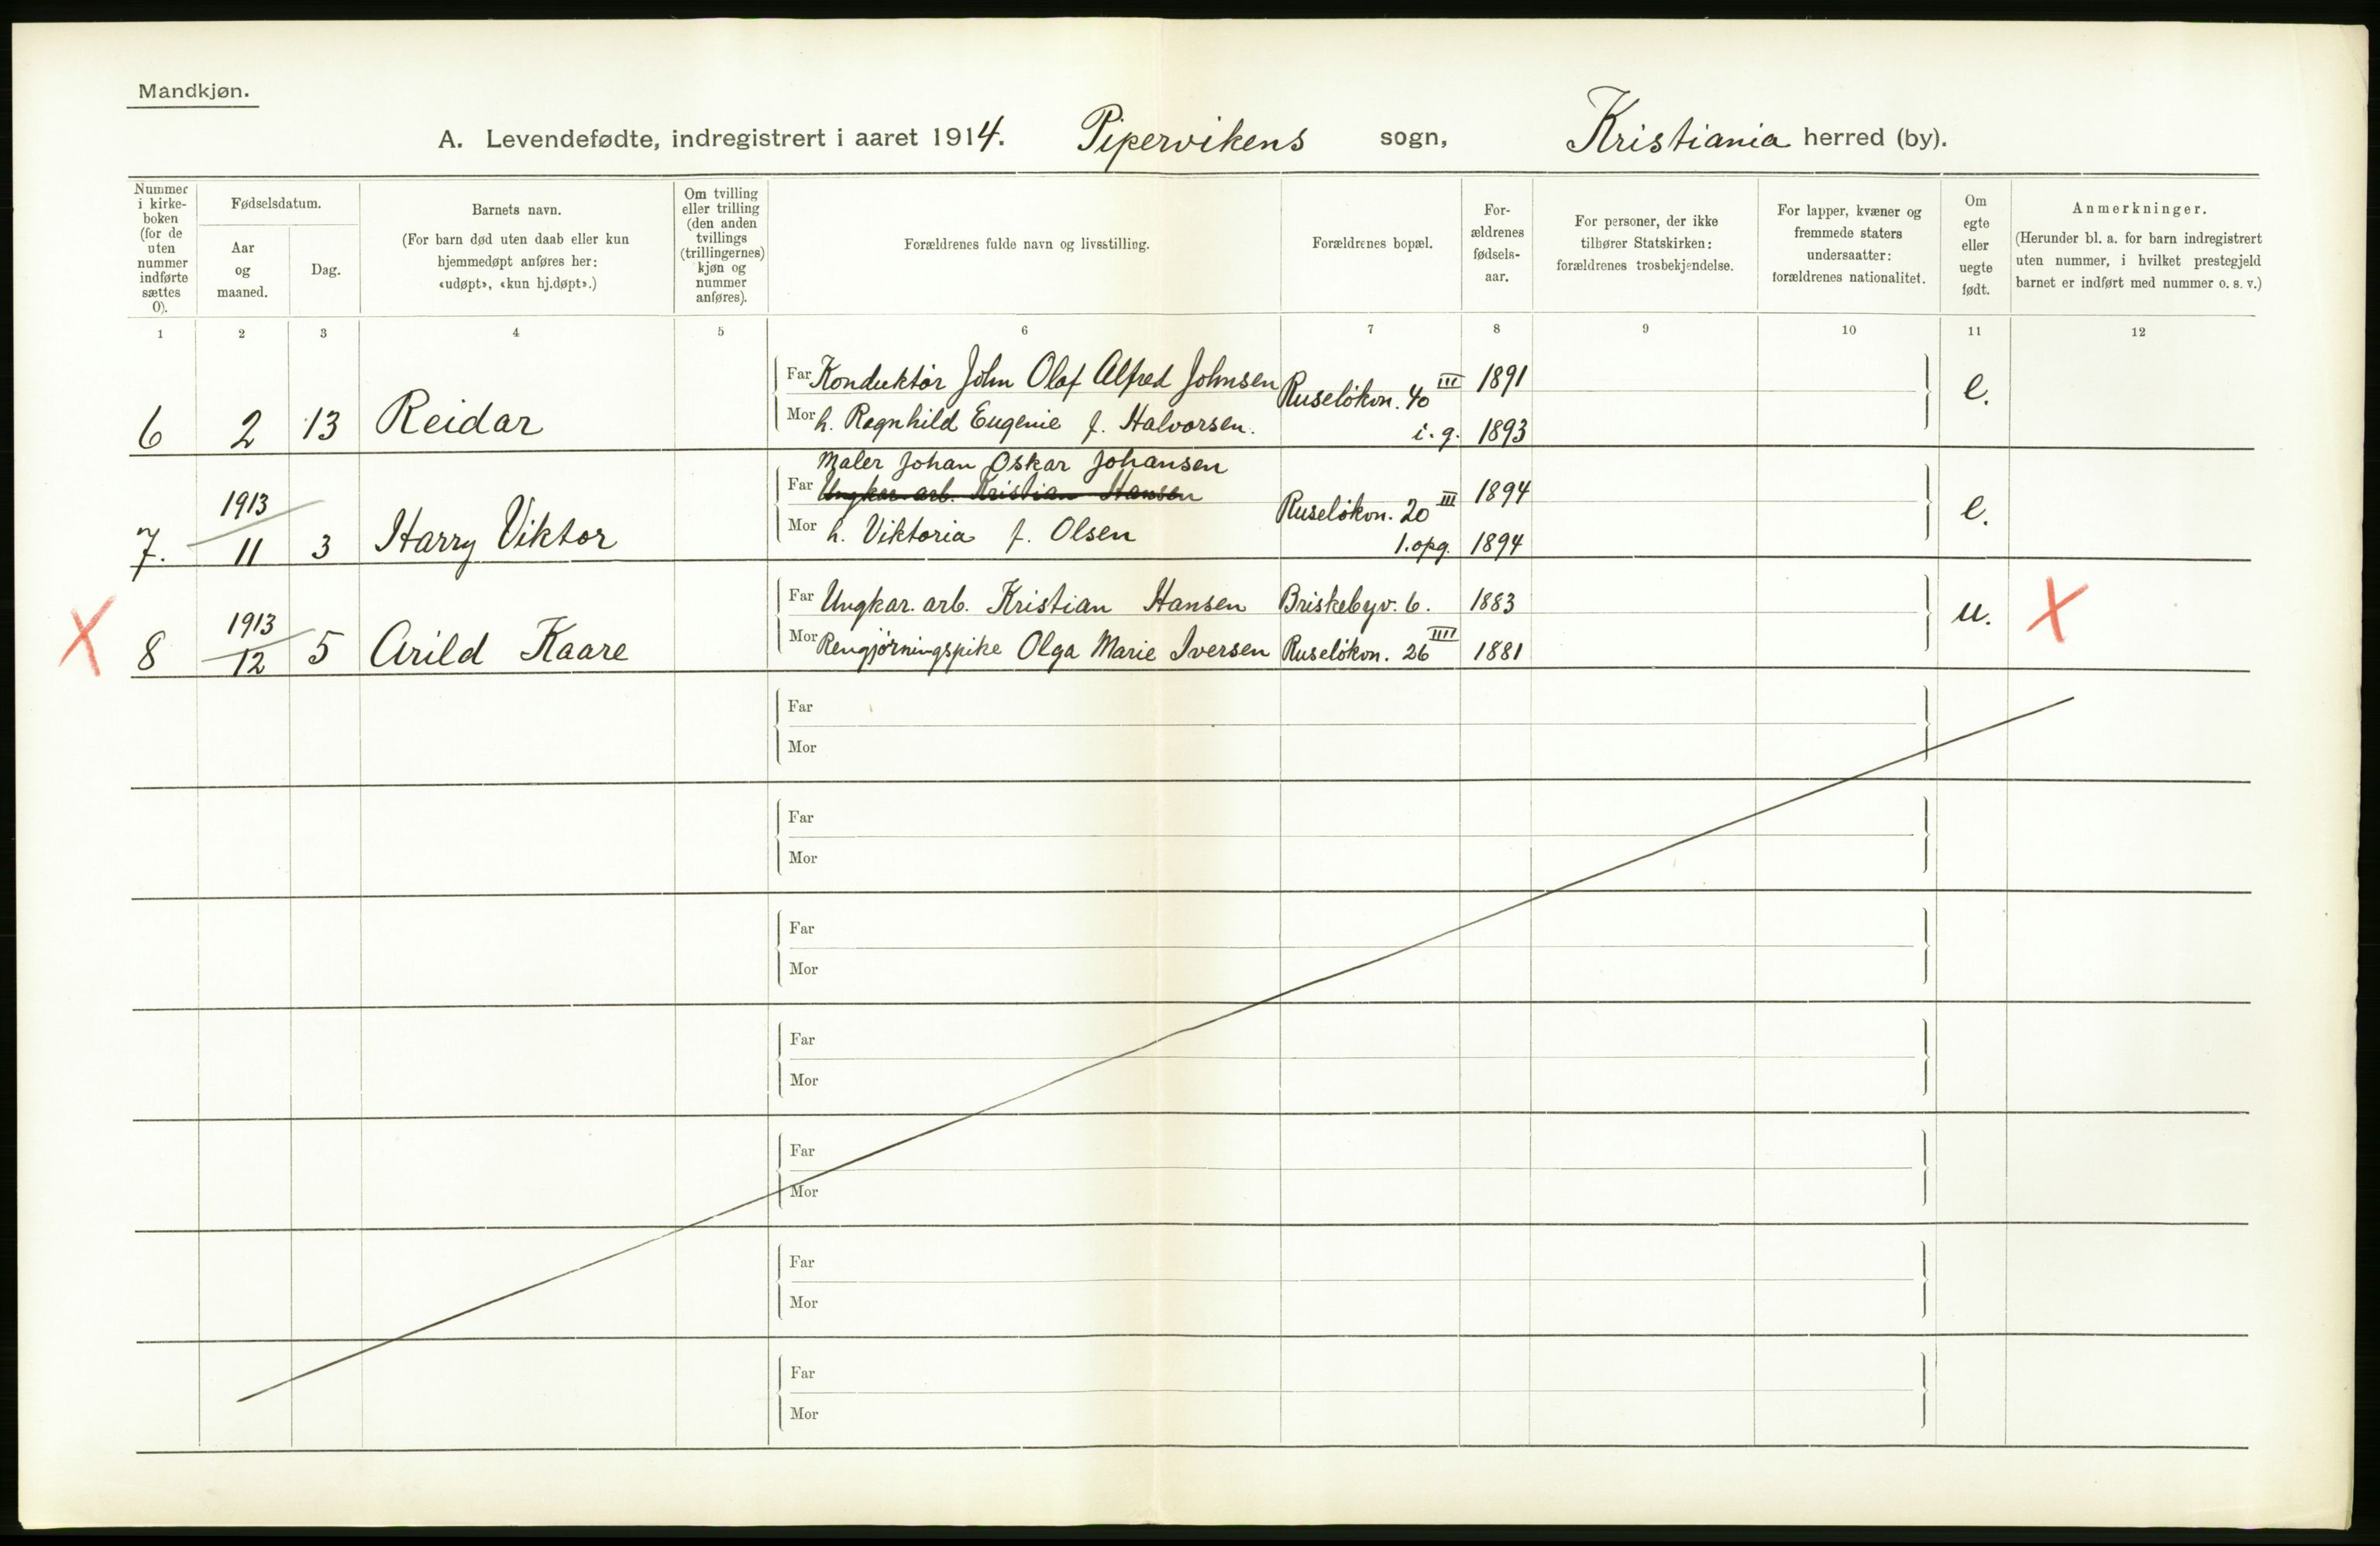 Mandkjøn.
A. Levendefødte, indregistrert i aaret 1914. Pipervikens sogn, Kristiania herred (by).
Nummer i kirke-boken (for de uten nummer indførte sættes 0).
Fødselsdatum.
Aar og maaned.
Dag.
Barnets navn.
(For barn død uten daab eller kun hjemmedøpt anføres her: «udøpt», «kun hj.døpt».)
Om tvilling eller trilling (den anden tvillings (trillingernes) kjøn og nummer anføres).
Forældrenes fulde navn og livsstilling.
Forældrenes bopæl.
For-ældrenes fødsels-aar.
For personer, der ikke tilhører Statskirken: forældrenes trosbekjendelse.
For lapper, kvæner og fremmede staters undersaatter: forældrenes nationalitet.
Om egte eller uegte født.
Anmerkninger.
(Herunder bl. a. for barn indregistrert uten nummer, i hvilket prestegjeld barnet er indført med nummer o. s. v.)
1 2 3 4 5 6 7 8 9 10 11 12
Far Konduktör John Olaf Alfred Johnsen Ruselökvn. 40 III 1891 e.
6 2 13 Reidar Mor h. Ragnhild Eugenie f. Halvorsen. i. g. 1893
Maler Johan Oskar Johansen
1913 Far Ungkar. arb. Kristian Hansen Ruselökvn. 20 III 1894 e.
7. 11 3 Harry Viktor Mor h. Viktoria f. Olsen 1. opg. 1894
1913 Far Ungkar. arb. Kristian Hansen Briskebyv. 6. 1883 u. X
X 8 12 5 Arild Kaare Mor Rengjörningspike Olga Marie Iversen Ruselökvn. 26 IIII 1881
Far
Mor
Far
Mor
Far
Mor
Far
Mor
Far
Mor
Far
Mor
Far
Mor